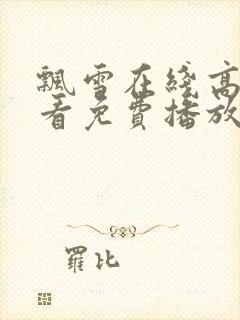 飄雪在綫高
看免費播放
羅比